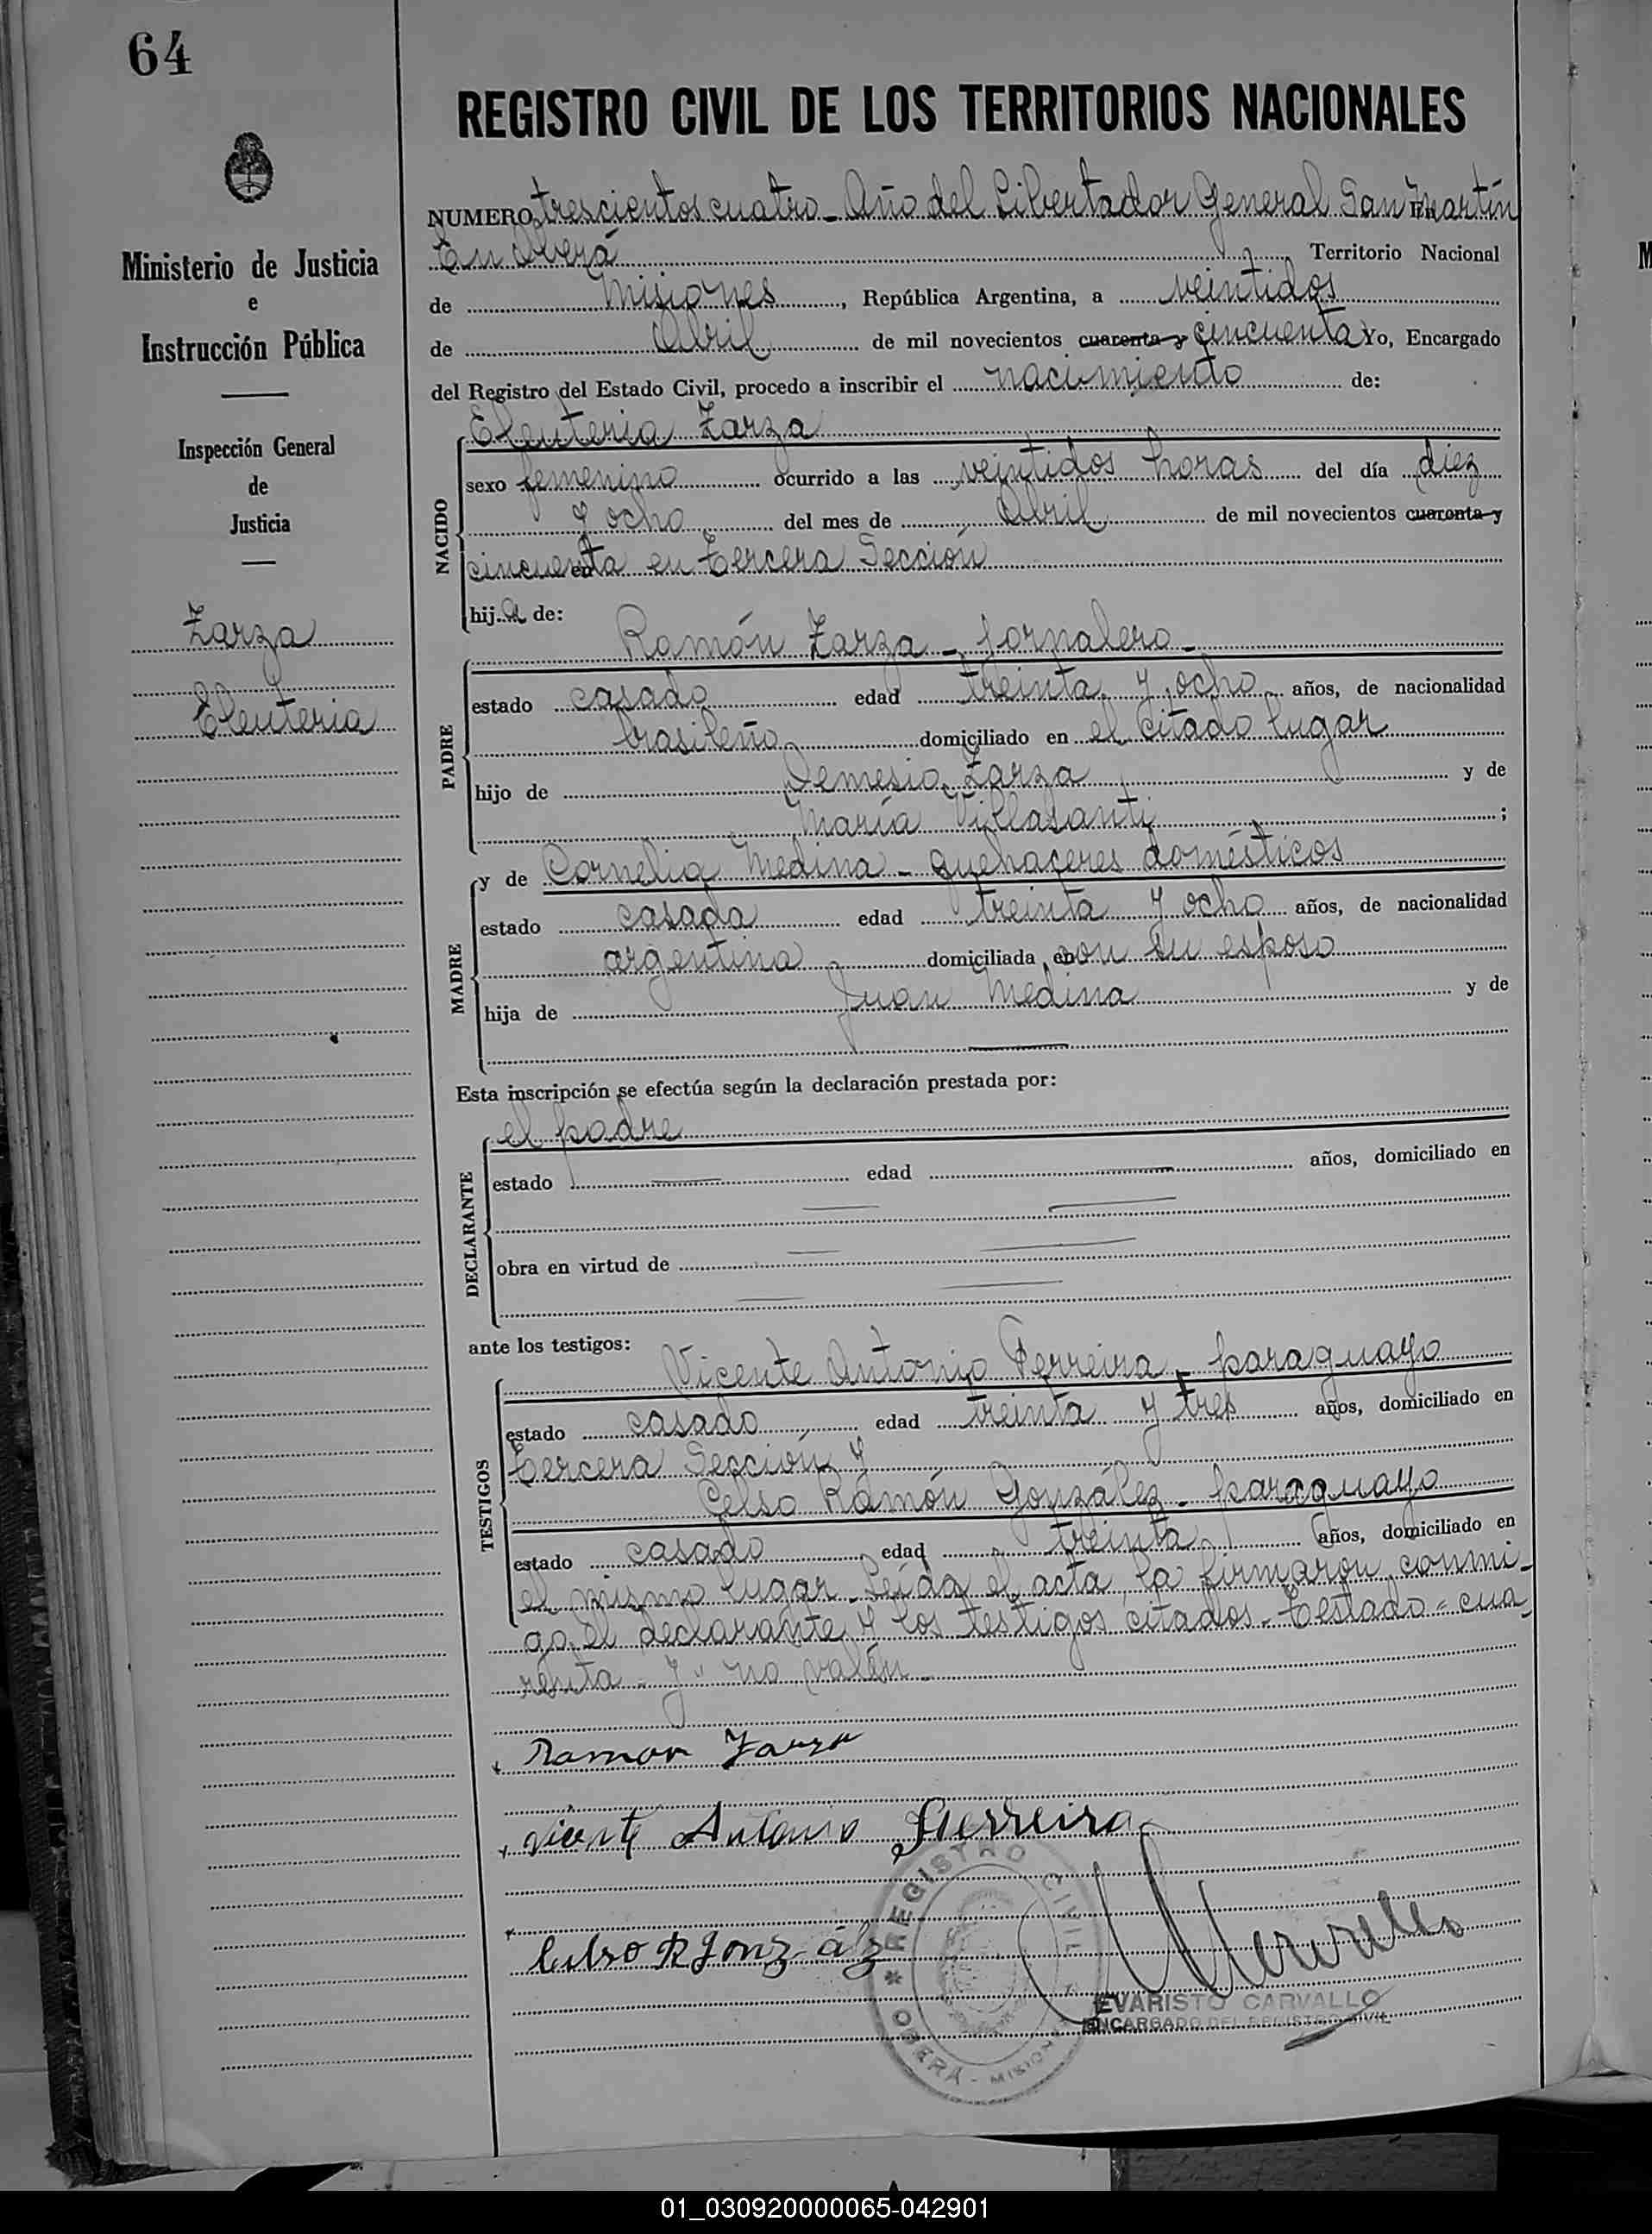 64
REGISTRO CIVIL DE LOS TERRITORIOS NACIONALES
NUMERO trescientos cuatro - Año del Libertador General San Martín
En Oberá Territorio Nacional
de Misiones, República Argentina, a veintidos
de Abril de mil novecientos cuarenta y cincuenta Yo, Encargado
del Registro del Estado Civil, procedo a inscribir el nacimiento de:
Ministerio de Justicia
e
Instrucción Pública
Inspección General
de
Justicia
Zarza
Eleuteria
NACIDO
Eleuteria Zarza
sexo femenino ocurrido a las veintidos horas del día diez
y ocho del mes de Abril de mil novecientos cuarenta y
cincuenta en tercera Sección
hija de:
PADRE
Ramón Zarza - jornalero -
estado casado edad treinta y ocho años, de nacionalidad
brasileño domiciliado en el citado lugar
hijo de Demesio Zarza y de
María Villasanti ;
MADRE
y de Cornelia Medina - quehaceres domésticos
estado casada edad treinta y ocho años, de nacionalidad
argentina domiciliada con su esposo
hija de Juan Medina y de
Esta inscripción se efectúa según la declaración prestada por:
DECLARANTE
el padre
estado edad años, domiciliado en
obra en virtud de
ante los testigos:
TESTIGOS
Vicente Antonio Ferreira - paraguayo
estado casado edad treinta y tres años, domiciliado en
tercera Sección y
Celso Ramón González - paraguayo
estado casado edad treinta años, domiciliado en
el mismo lugar. Leída el acta la firmaron conmi-
go el declarante y los testigos citados. Testado = cua-
renta - y" no valen -
Ramon Zarza
Vicente Antonio Ferreira
Celso R Gonzalz
REGISTRO CIVIL
OBERÁ - MISIONES
EVARISTO CARVALLO
ENCARGADO DEL REGISTRO CIVIL
01_030920000065-042901